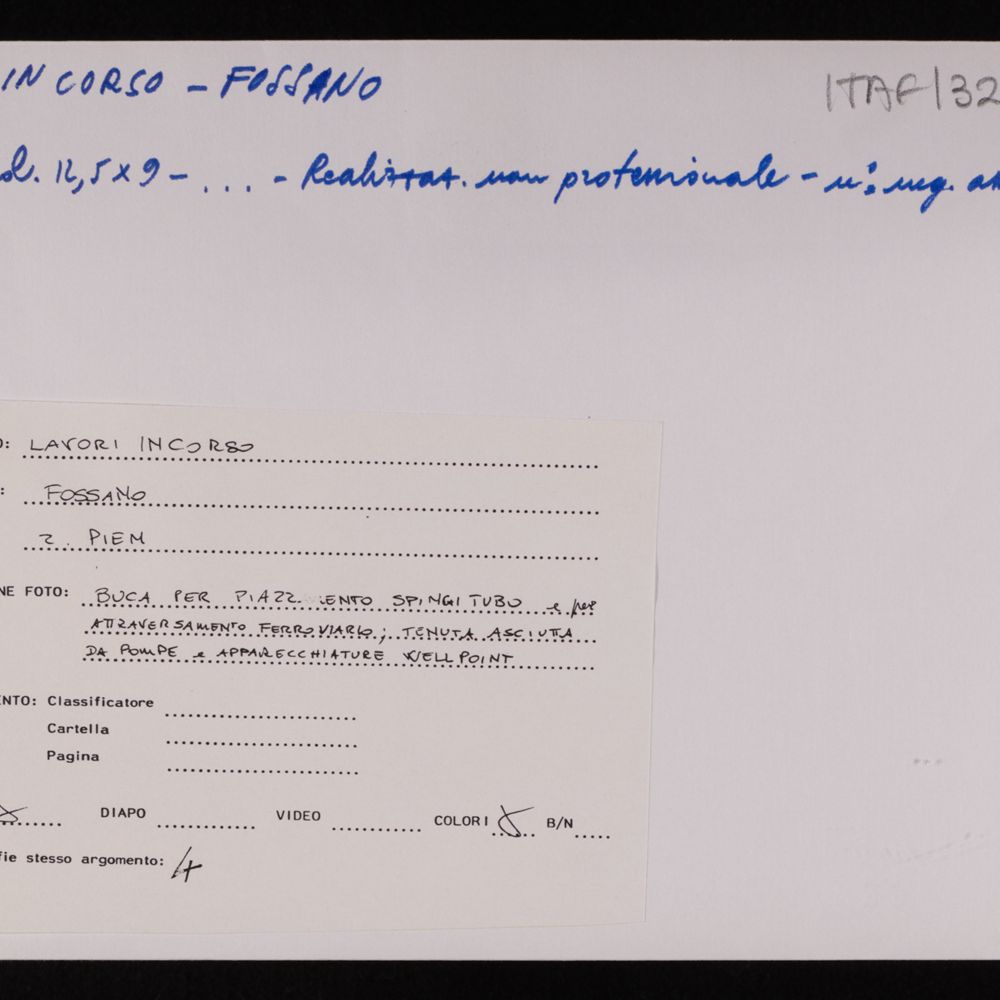 IN CORSO - FOSSANO
ITAF/32
12,5x9 - ... - Realizzaz. non professionale - n°: neg.
: LAVORI IN CORSO
: FOSSANO
2. PIEM
NE FOTO: BUCA PER PIAZZ ENTO SPINGITUBO e per
ATTRAVERSAMENTO FERROVIARIO; TENUTA ASCIUTTA
DA POMPE e APPARECCHIATURE WELLPOINT
NTO: Classificatore
Cartella
Pagina
X DIAPO VIDEO COLORI X B/N
fie stesso argomento: 4